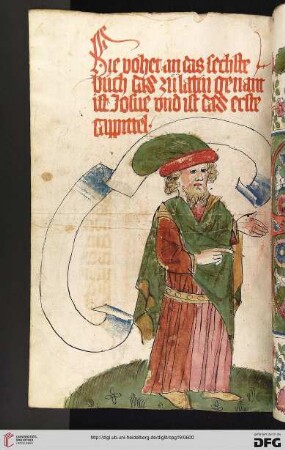 Hie vohet an das sechste
buch das zu lattin genant
ist Josue vnd ist das erste
cappittel·
UNIVERSITÄTS-
BIBLIOTHEK
HEIDELBERG
http://digi.ub.uni-heidelberg.de/diglit/cpg19/0600
DFG